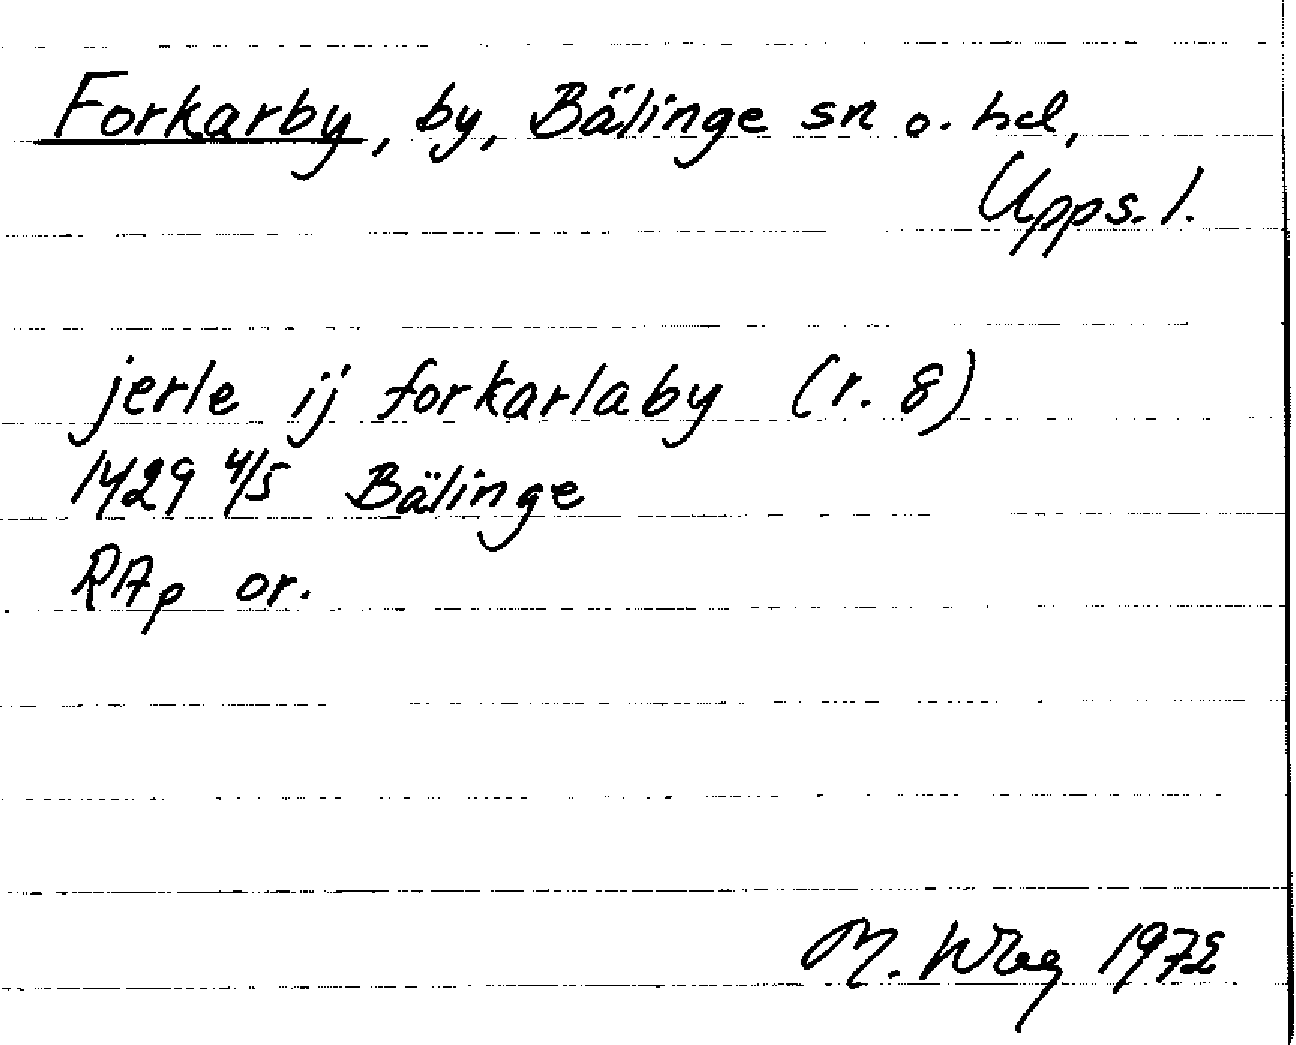 Forkarby, by, Bälinge sn o. hd,
Upps. l.
jerle ij forkarlaby (r. 8)
1429 4/5 Bälinge
RAp or.
M. Wbg 1972